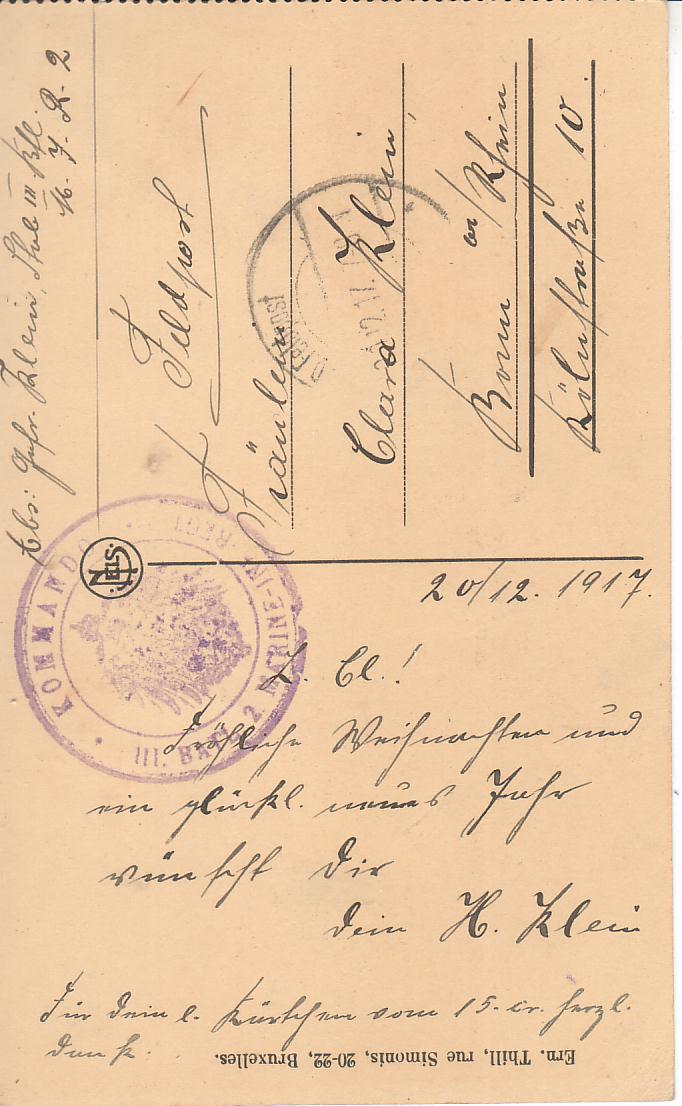 Abs: Gefr. Klein, Stab III Btl.
M. I. R. 2
Feldpost
Fräulein
Clara Klein,
Bonn a/Rhein
Kölnstraße 10.
NELS
KOMMANDO
III. BATL. 2 MARINE-INF.-REGT.
Feldpost
20/12. 1917.
L. Cl.!
Fröhliche Weihnachten und
ein glückl. neues Jahr
wünscht Dir
Dein H. Klein
Für Dein l. Kärtchen vom 15. cr. herzl.
Dank.
Ern. Thill, rue Simonis, 20-22, Bruxelles.